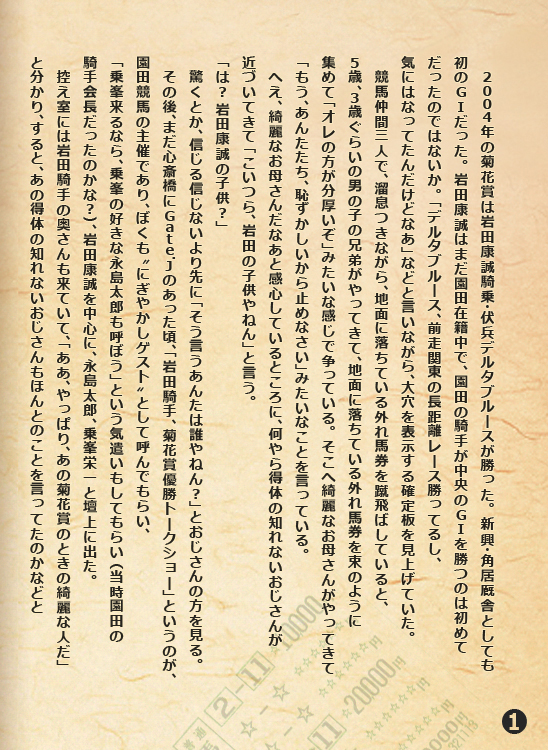 ２００４年の菊花賞は岩田康誠騎乗・伏兵デルタブルースが勝った。新興・角居厩舎としても
初のＧＩだった。岩田康誠はまだ園田在籍中で、園田の騎手が中央のＧＩを勝つのは初めて
だったのではないか。「デルタブルース、前走関東の長距離レース勝ってるし、
気にはなってたんだけどなあ」などと言いながら、大穴を表示する確定板を見上げていた。
競馬仲間三人で、溜息つきながら、地面に落ちている外れ馬券を蹴飛ばしていると、
５歳、３歳ぐらいの男の子の兄弟がやってきて、地面に落ちている外れ馬券を束のように
集めて「オレの方が分厚いぞ」みたいな感じで争っている。そこへ綺麗なお母さんがやってきて
「もう、あんたたち、恥ずかしいから止めなさい」みたいなことを言っている。
へえ、綺麗なお母さんだなあと感心しているところに、何やら得体の知れないおじさんが
近づいてきて「こいつら、岩田の子供やねん」と言う。
「は？ 岩田康誠の子供？」
驚くとか、信じる信じないより先に「そう言うあんたは誰やねん？」とおじさんの方を見る。
その後、まだ心斎橋にＧａｔｅ．Ｊのあった頃、「岩田騎手、菊花賞優勝トークショー」というのが、
園田競馬の主催であり、ぼくも〝にぎやかしゲスト〟として呼んでもらい、
「乗峯来るなら、乗峯の好きな永島太郎も呼ぼう」という気遣いもしてもらい（当時園田の
騎手会長だったのかな？）、岩田康誠を中心に、永島太郎、乗峯栄一と壇上に出た。
控え室には岩田騎手の奥さんも来ていて、「ああ、やっぱり、あの菊花賞のときの綺麗な人だ」
と分かり、すると、あの得体の知れないおじさんもほんとのことを言ってたのかなどと
2-11 10000円
☆☆☆☆☆☆円
11 20000円
☆☆☆☆☆☆円
1